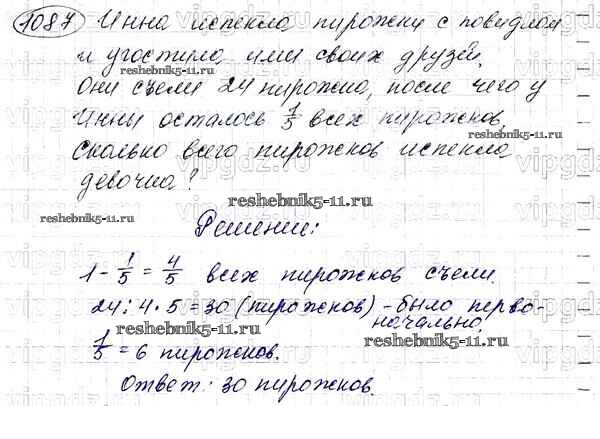 1087 Инна испекла пирожки с повидлом
и угостила ими своих друзей.
reshebnik5-11.ru
Они съели 24 пирожка, после чего у
Инны осталось 1/5 всех пирожков.
reshebnik5-11.ru
Сколько всего пирожков испекла
девочка?
reshebnik5-11.ru
reshebnik5-11.ru
Решение:
1 - 1/5 = 4/5 всех пирожков съели.
24 : 4 · 5 = 30 (пирожков) - было перво-
начально.
reshebnik5-11.ru
reshebnik5-11.ru
1/5 = 6 пирожков.
Ответ: 30 пирожков.